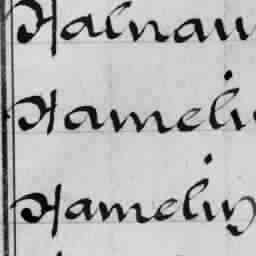 Halnau
Hameli
Hamelin